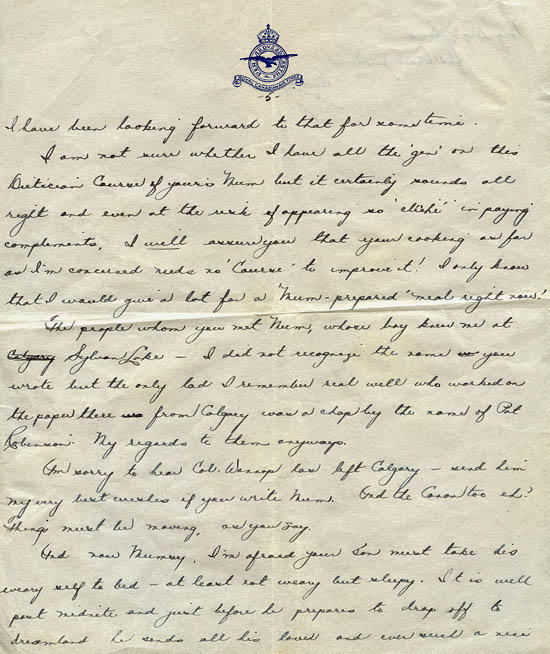 ROYAL CANADIAN AIR FORCE
-5-
I have been looking forward to that for sometime.
I am not sure whether I have all the 'gen' on this
Dietician Course of yours Mum but it certainly sounds all
right and even at the risk of appearing so 'cliché' in paying
complements, I will assure you that your cooking as far
as I'm concerned needs no 'Course' to improve it! I only know
that I would give a lot for a "Mum-prepared" meal right now!
The people whom you met Mum, whose boy knew me at
Calgary Sylvan Lake — I did not recognize the name you
wrote but the only lad I remember real well who worked on
the paper there from Calgary was a chap by the name of Pat
Robinson. My regards to them anyways.
I'm sorry to hear Col. has left Calgary — send him
my very best wishes if you write Mum. And the Canon too eh?
Things must be moving, as you say.
And now Mumsy, I'm afraid your son must take his
weary self to bed — at least not weary but sleepy. It is well
past midnite and just before he prepares to drop off to
dreamland he sends all his love and ever such a nice